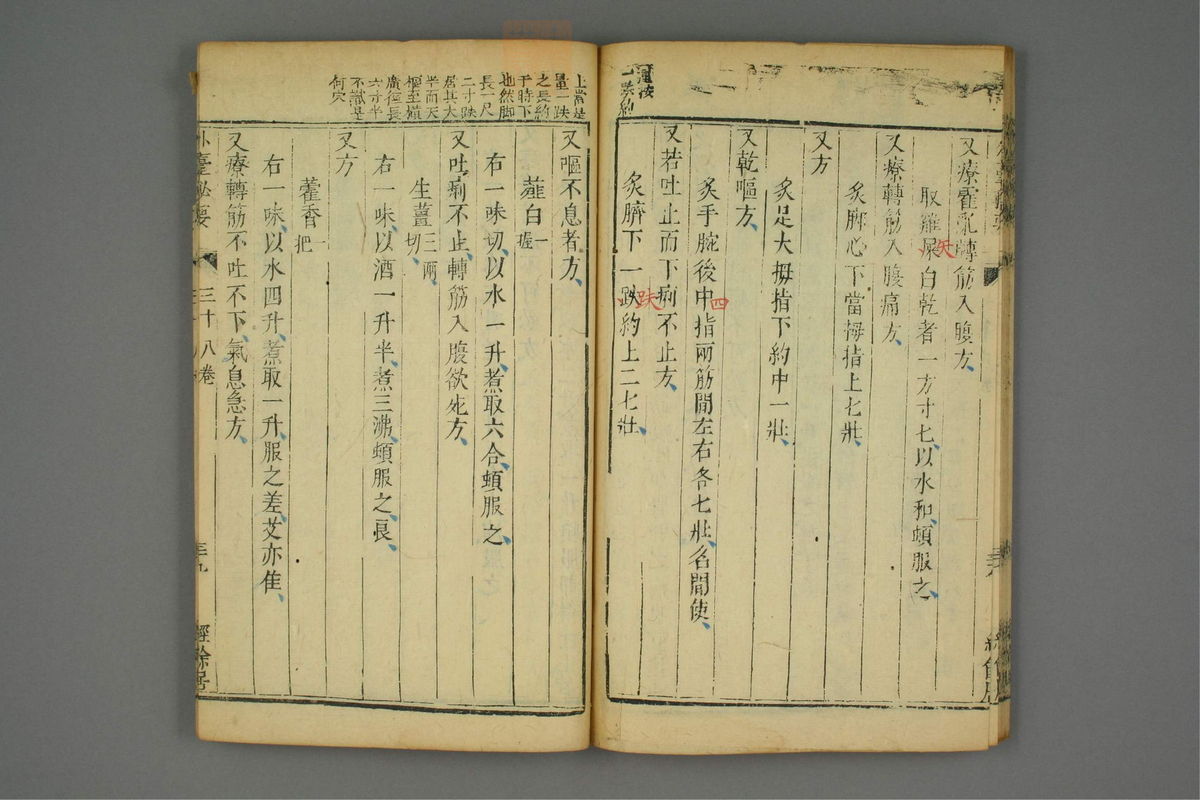 又療霍亂轉筋入腹方
取雞屎白乾者一方寸匕以水和頓服之
矢
又療轉筋入腹痛方
炙脚心下當拇指上七壯
又方
炙足大拇指下約中一壯
又乾嘔方
炙手腕後中指兩筋間左右各七壯名間使
四
又若吐止而下痢不止方
炙臍下一跌約上二七壯
趺
又嘔不息者方
薤白一握
右一味切以水一升煮取六合頓服之
又吐痢不止轉筋入腹欲死方
生薑三兩切
右一味以酒一升半煮三沸頓服之良
又方
藿香一把
右一味以水四升煮取一升服之差艾亦佳
又療轉筋不吐不下氣息急方
上當是
量一趺
之長約
于時下
也然脚
長一尺
二寸趺
居其大
半而天
樞至橫
廣徑長
六寸半
不識是
何穴
外臺秘要
三十八卷
三九
經餘居